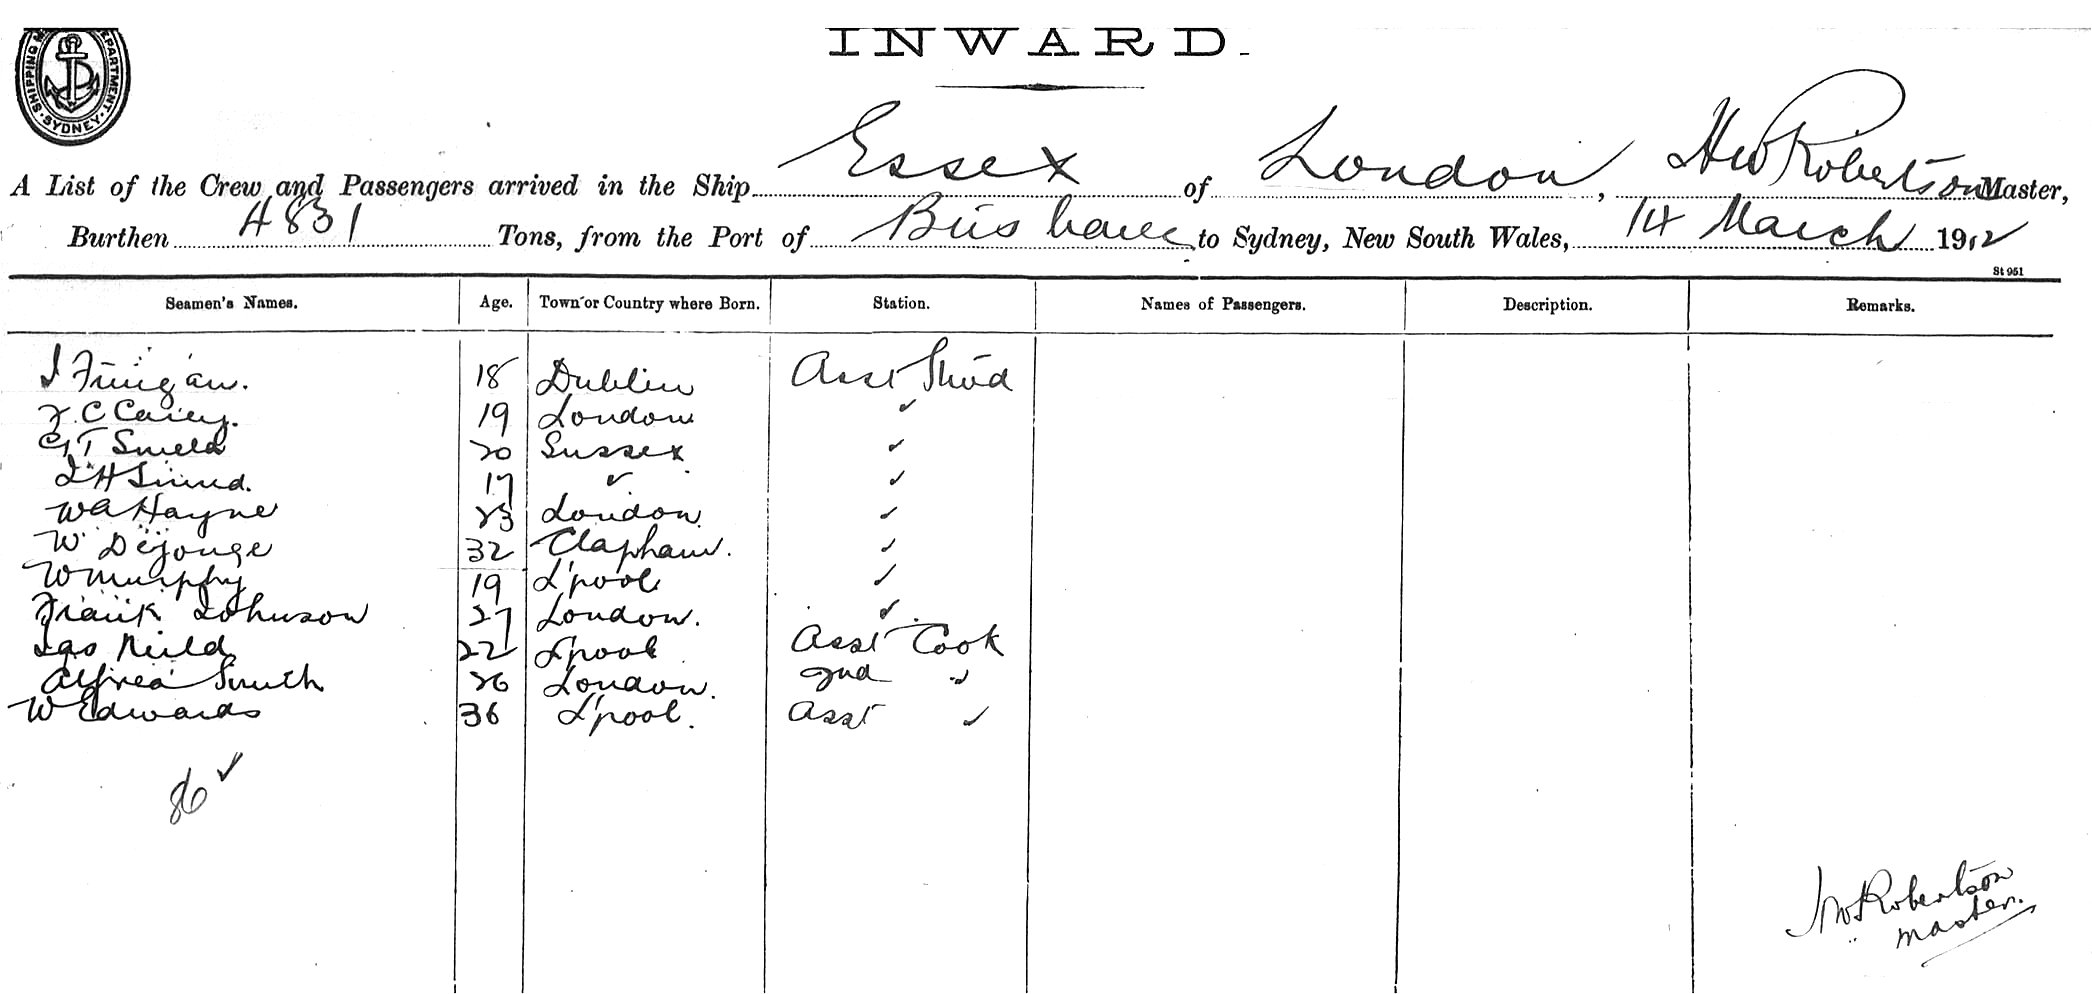 INWARD.
SHIPPING DEPARTMENT SYDNEY
A List of the Crew and Passengers arrived in the Ship Essex of London, HW Robertson Master,
Burthen 4831 Tons, from the Port of Brisbane to Sydney, New South Wales, 14 March 1912
St 951
Seamen's Names. Age. Town or Country where Born. Station. Names of Passengers. Description. Remarks.
J Finigan. 18 Dublin Asst Stwd
F. C Carey. 19 London ✓
G T 20 Sussex ✓
17 ✓ ✓
W A Hayne 23 London ✓
W Dejonge 32 Clapham. ✓
W Murphy 19 L'pool ✓
Frank Johnson 27 London. ✓
Jas Neild 22 L'pool Asst Cook
Alfred Smith 26 London. 2nd "
W Edwards 36 L'pool. Asst ✓
86 ✓
HW Robertson
Master.